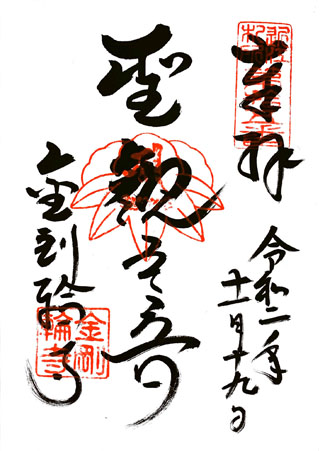 奉拝
令和二年
十一月十九日
聖観世音
金剛輪寺
金剛
輪寺